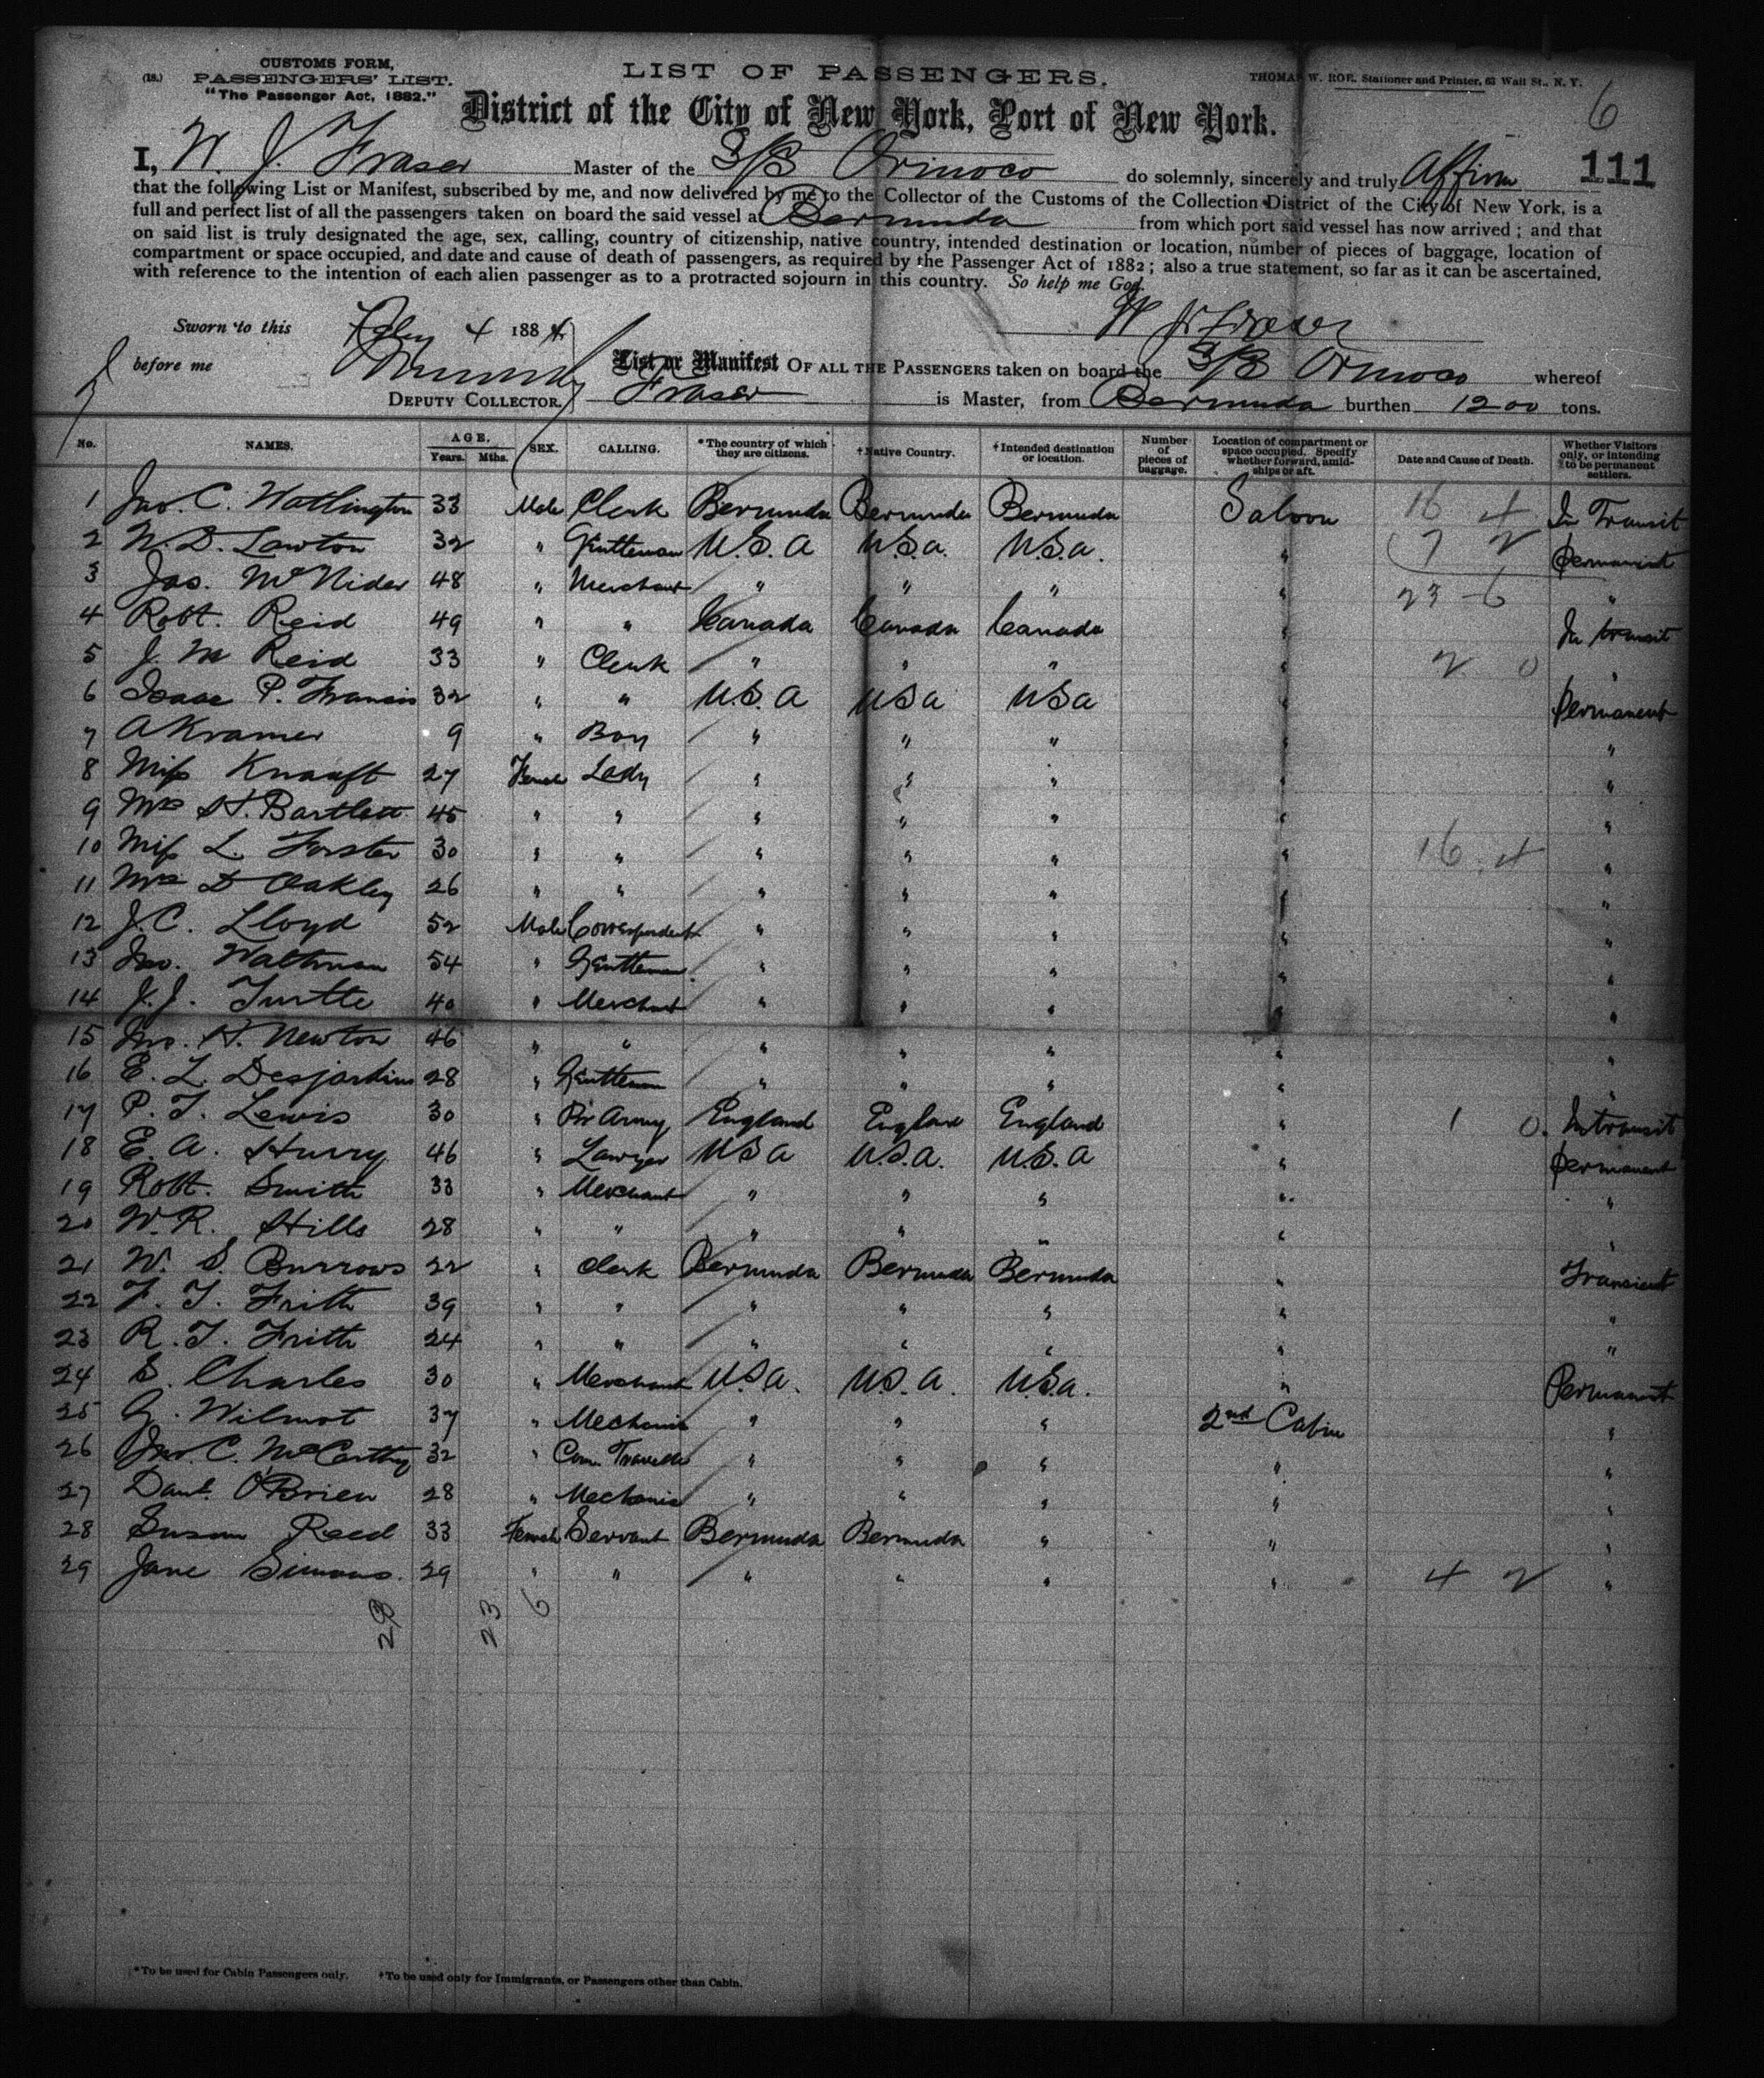 (18.) CUSTOMS FORM,
PASSENGERS' LIST.
"The Passenger Act, 1882."
LIST OF PASSENGERS.
THOMAS W. ROE, Stationer and Printer, 63 Wall St., N. Y.
District of the City of New York, Port of New York.
6
111
I, W. J. Fraser Master of the S/S Orinoco do solemnly, sincerely and truly Affirm
that the following List or Manifest, subscribed by me, and now delivered by me to the Collector of the Customs of the Collection District of the City of New York, is a
full and perfect list of all the passengers taken on board the said vessel at Bermuda from which port said vessel has now arrived; and that
on said list is truly designated the age, sex, calling, country of citizenship, native country, intended destination or location, number of pieces of baggage, location of
compartment or space occupied, and date and cause of death of passengers, as required by the Passenger Act of 1882; also a true statement, so far as it can be ascertained,
with reference to the intention of each alien passenger as to a protracted sojourn in this country. So help me God.
Sworn to this Feby 4 1884
W J Fraser
before me
DEPUTY COLLECTOR.
List or Manifest OF ALL THE PASSENGERS taken on board the S/S Orinoco whereof
Fraser is Master, from Bermuda burthen 1200 tons.
No. NAMES. AGE. Years. Mths. SEX. CALLING. *The country of which they are citizens. †Native Country. †Intended destination or location. Number of pieces of baggage. Location of compartment or space occupied. Specify whether forward, amidships or aft. Date and Cause of Death. Whether Visitors only, or intending to be permanent settlers.
1 Jno. C. Watlington 33 Male Clerk Bermuda Bermuda Bermuda Saloon 16 4 In Transit
2 W. D. Lawton 32 " Gentleman U.S.A U.S.a. U.S.a. " 7 2 Permanent
3 Jas. McNider 48 " Merchant " " " " 23 - 6 "
4 Robt. Reid 49 " " Canada Canada Canada " In transit
5 J. M Reid 33 " Clerk " " " " 2 0 "
6 Isaac P. Francis 32 " " U.S.A USA USA " Permanent
7 A Kramer 9 " Boy " " " " "
8 Miss Knauft 27 Female Lady " " " " "
9 Mrs H. Bartlett 45 " " " " " " "
10 Miss L. Forster 30 " " " " " " 16 4 "
11 Mrs D Oakley 26 " " " " " " "
12 J. C. Lloyd 52 Male Correspondent " " " " "
13 Jno. Waltman 54 " Gentleman " " " " "
14 J. J. Turtle 40 " Merchant " " " " "
15 Jno. H. Newton 46 " " " " " " "
16 E. L. Desjardins 28 " Gentleman " " " " "
17 P. T. Lewis 30 " Army England England England " 1 0. Intransit
18 E. A. Hurry 46 " Lawyer USA U.S.A. U.S.A " Permanent
19 Robt. Smith 33 " Merchant " " " " "
20 W. R. Hills 28 " " " " " " "
21 W. S. Burrows 22 " Clerk Bermuda Bermuda Bermuda " Transient
22 F. T. Frith 39 " " " " " " "
23 R. T. Frith 24 " " " " " " "
24 S. Charles 30 " Merchant U.S.A. U.S.A. U.S.a. " Permanent
25 G. Wilmot 37 " Mechanic " " " 2nd Cabin "
26 Jno. C. McCarthy 32 " Com. Traveller " " " " "
27 Danl. O'Brien 28 " Mechanic " " " " "
28 Susan Reed 33 Female Servant Bermuda Bermuda " " "
29 Jane Simons. 29 " " " " " " 4 2 "
23 6
*To be used for Cabin Passengers only. †To be used only for Immigrants, or Passengers other than Cabin.